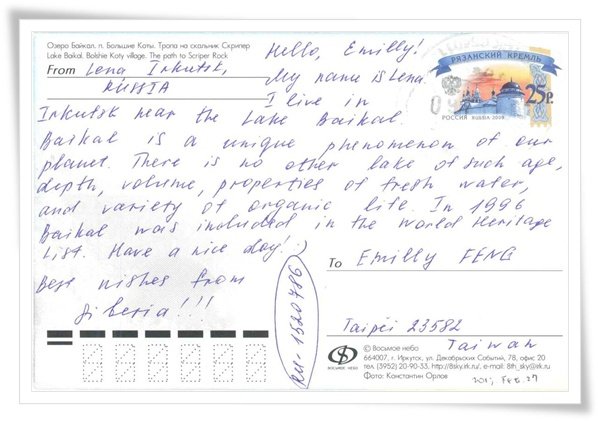 Озеро Байкал. п. Большие Коты. Тропа на скальник Скрипер
Lake Baikal. Bolshie Koty village. The path to Scriper Rock
From Lena Irkutsk,
RUSSIA
Hello, Emilly!
My name is Lena.
I live in
Irkutsk near the Lake Baikal.
Baikal is a unique phenomenon of our
planet. There is no other lake of such age,
depth, volume, properties of fresh water,
and variety of organic life. In 1996
Baikal was included in the World Heritage
List. Have a nice day!
Best wishes from
Siberia!!!
РЯЗАНСКИЙ КРЕМЛЬ
25р.
РОССИЯ RUSSIA 2009
To Emilly FENG
Taipei 23582
Taiwan
RU-1520786
© Восьмое небо
664007, г. Иркутск, ул. Декабрьских Событий, 78, офис 20
тел. (3952) 20-90-33, http://8sky.irk.ru/, e-mail: 8th_sky@irk.ru
Фото: Константин Орлов
ВОСЬМОЕ НЕБО
Feb. 27